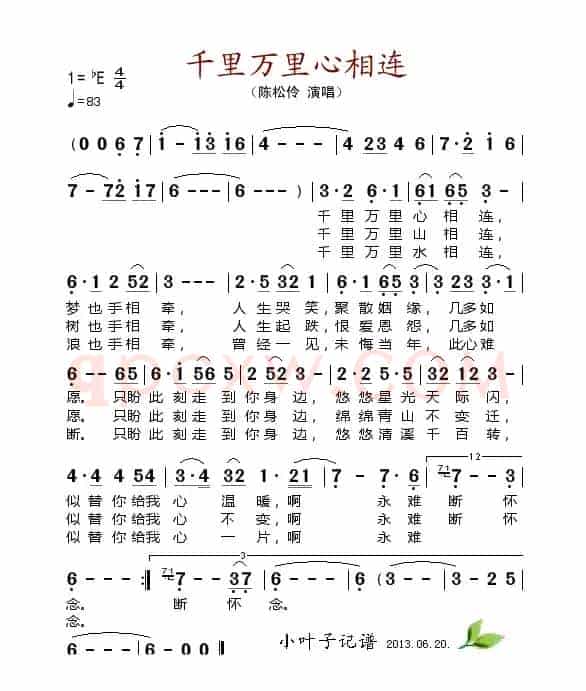 千里万里心相连
1=♭E 4/4
（陈松伶 演唱）
♩=83
(0 0 6 7 | 1 - 13 16 | 4 - - - | 4 23 4 6 | 7· 2 1 6 |
7 - 72 17 | 6 - - 6 | 6 - - - ) | 3· 2 6· 1 | 61 65 3 - |
千里万里心相连，
千里万里山相连，
千里万里水相连，
6· 1 2 52 | 3 - - - | 2· 5 32 1 | 1· 6 1 65 3 | 3 23 3· 1 |
梦也手相牵， 人生哭笑，聚散姻缘，几多如
树也手相牵， 人生起跌，恨爱恩怨，几多如
浪也手相牵， 曾经一见，未悔当年，此心难
6 - - 65 | 6· 1 56 5 | 2 52 3 - | 2· 5 3 5 | 32 12 3 - |
愿。 只盼此刻走到你身边，悠悠星光天际闪，
愿。 只盼此刻走到你身边，绵绵青山不变迁，
断。 只盼此刻走到你身边，悠悠清溪千百转，
4· 4 4 54 | 3· 4 32 | 1 · · 21 | 7 - 7· 6 | 71 7 - - 3 |
12
似替你给我心温暖，啊 永难断怀
似替你给我心不变，啊 永难断怀
似替你给我心一片，啊 永难
3
6 - - - :| 71 7 - - 37 | 6 - - - | 6 (3 - - | 3 - 2 5 |
念。 断怀念。
念。
6 - - - | 6 - - - ) ‖
小叶子记谱 2013.06.20.
qpcxw.com